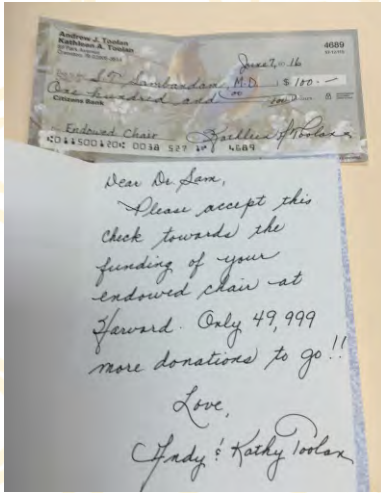 Andrew J. Toolan
Kathleen A. Toolan
4689
June 7, 16
S.T. Sambandam, M.D. $ 100.—
One hundred and
Citizens Bank
Endowed Chair Kathleen A Toolan
4689
Dear Dr. Sam,
Please accept this
check towards the
funding of your
endowed chair at
Harvard. Only 49,999
more donations to go!!
Love,
Andy & Kathy Toolan